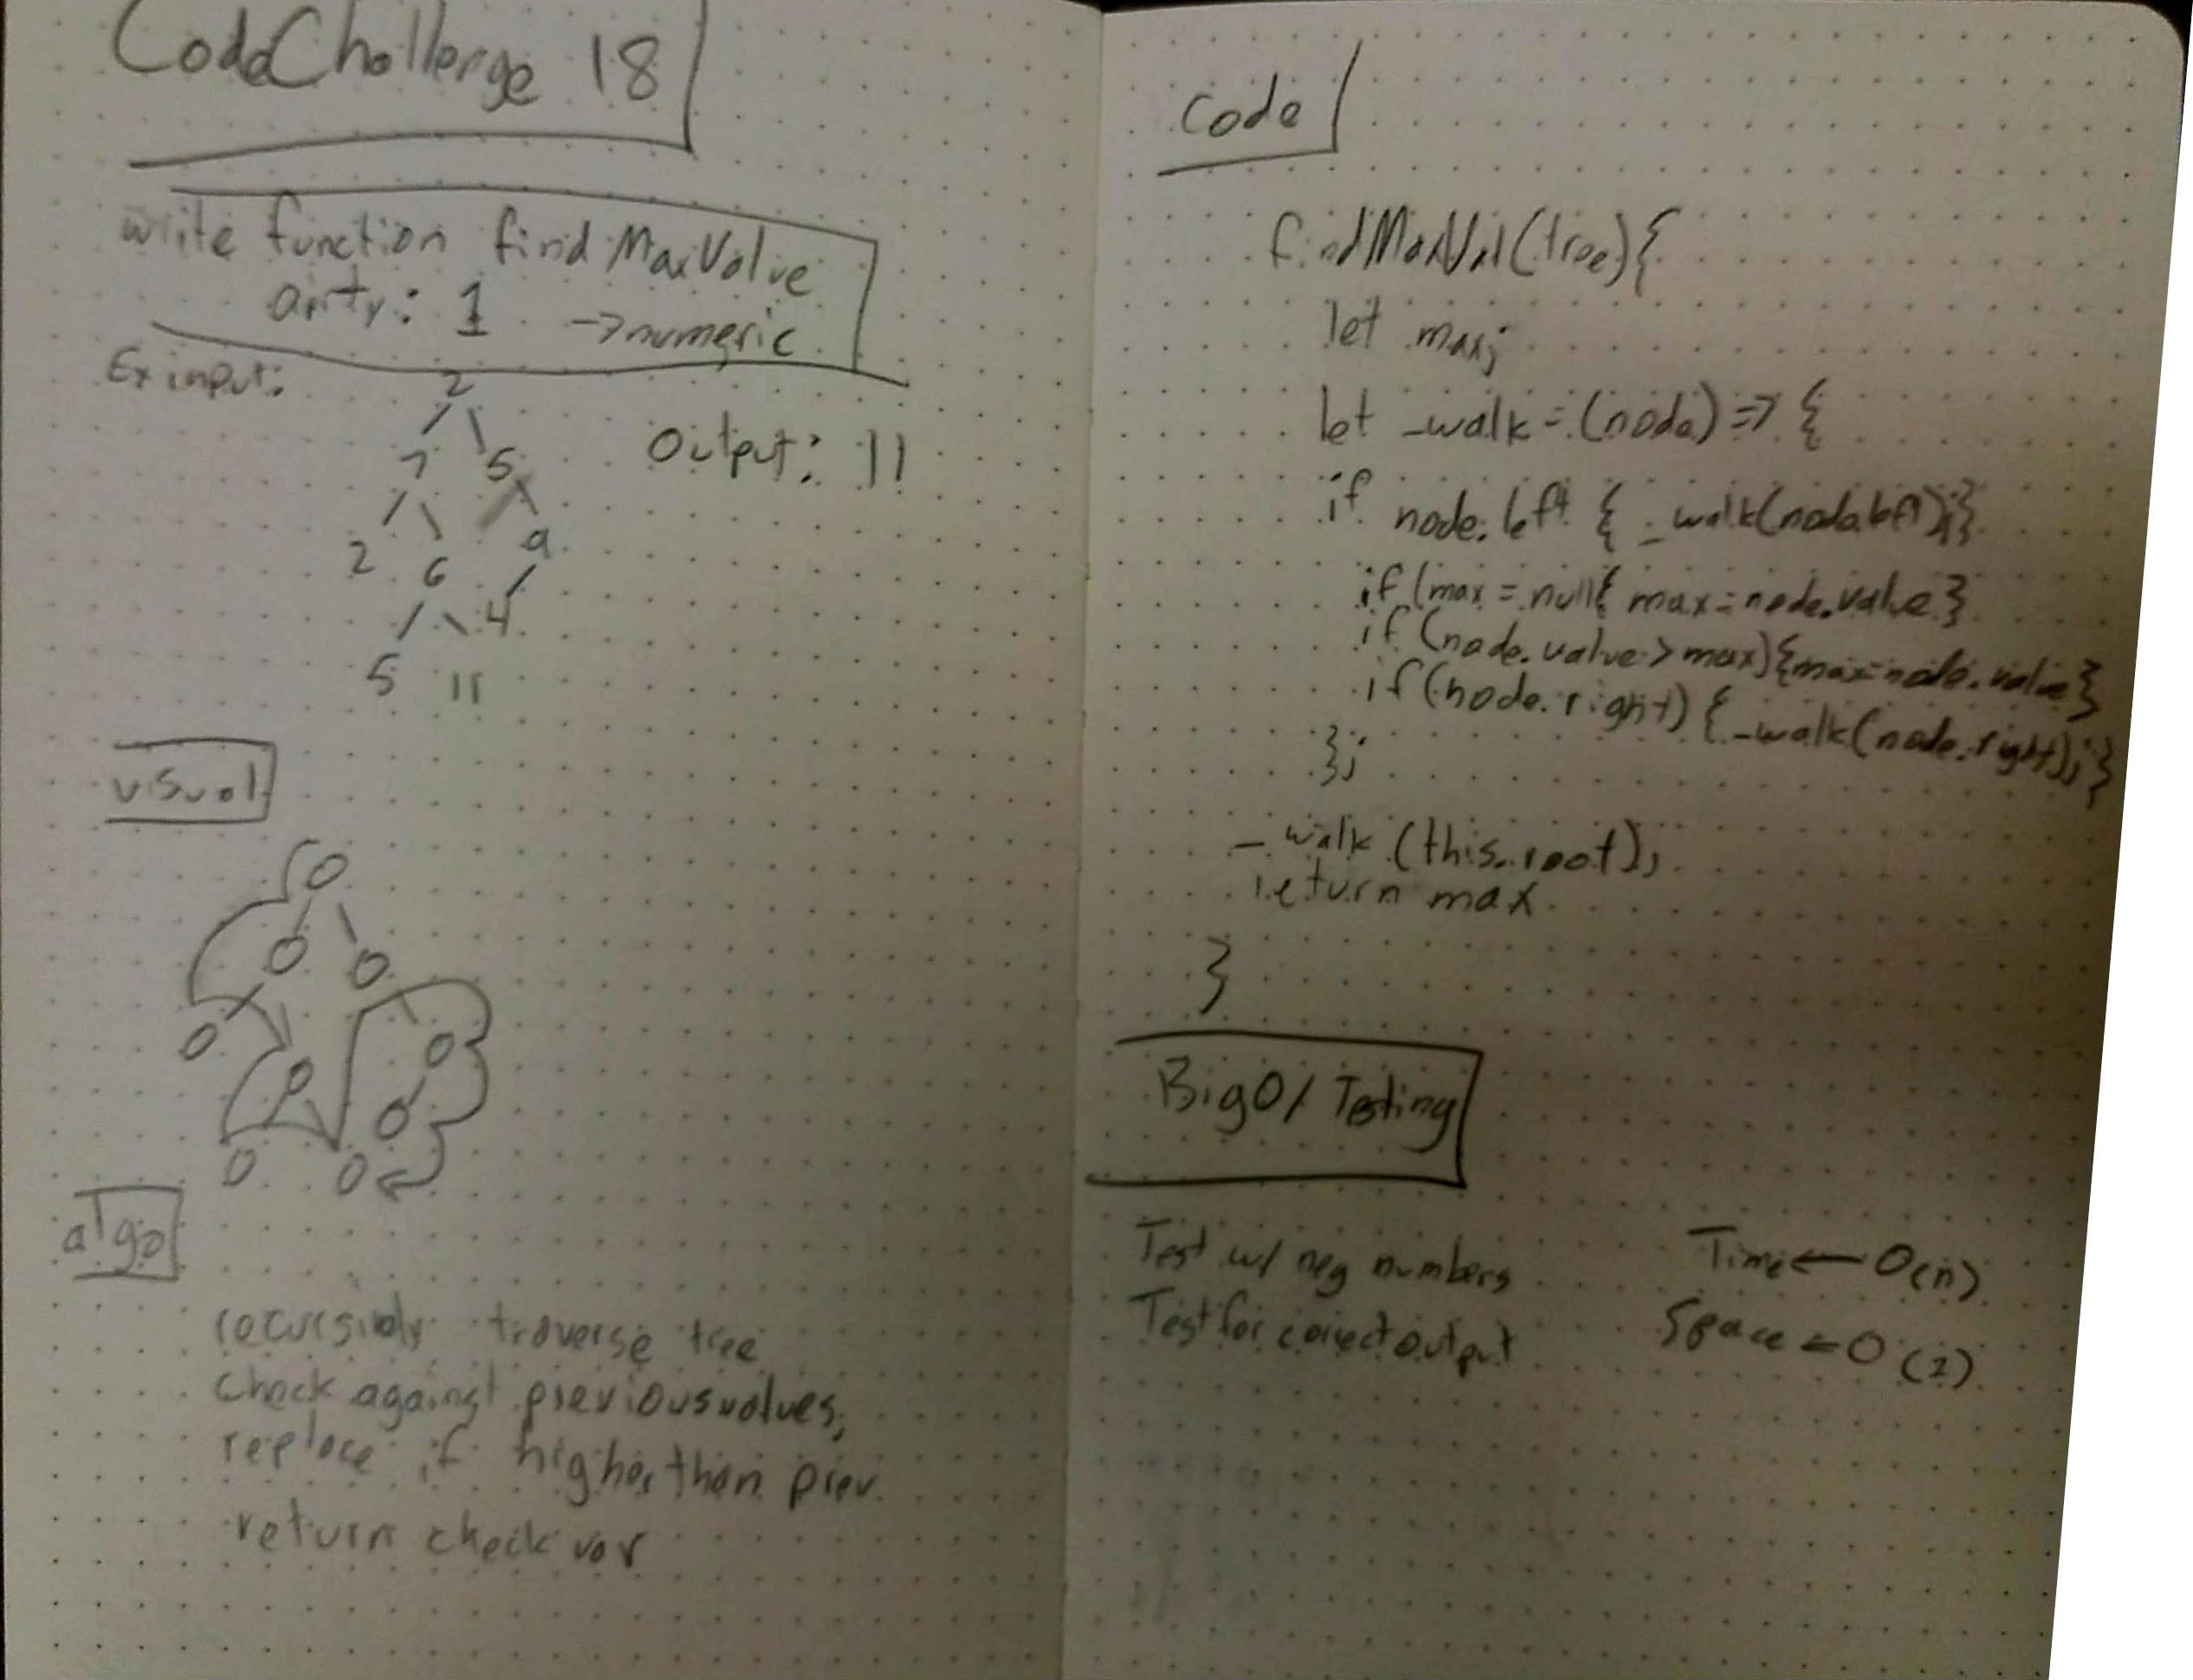 CodeChallenge 18
write function find MaxValue
arity: 1 -> numeric
Ex input:
2
7 5
2 6 9
5 11 4
Output: 11
visual
algo
recursivly traverse tree
check against previous values,
replace if higher than prev.
return check var
Code
findMaxVal(tree){
let max;
let _walk = (node) => {
if node.left { _walk(node.left);}
if (max = null{ max = node.value}
if (node.value > max){max=node.value}
if (node.right) {_walk(node.right);}
};
_walk (this.root);
return max
}
BigO/Testing
Test w/ neg numbers
Test for correct output
Time <- O(n)
Space <- O(1)